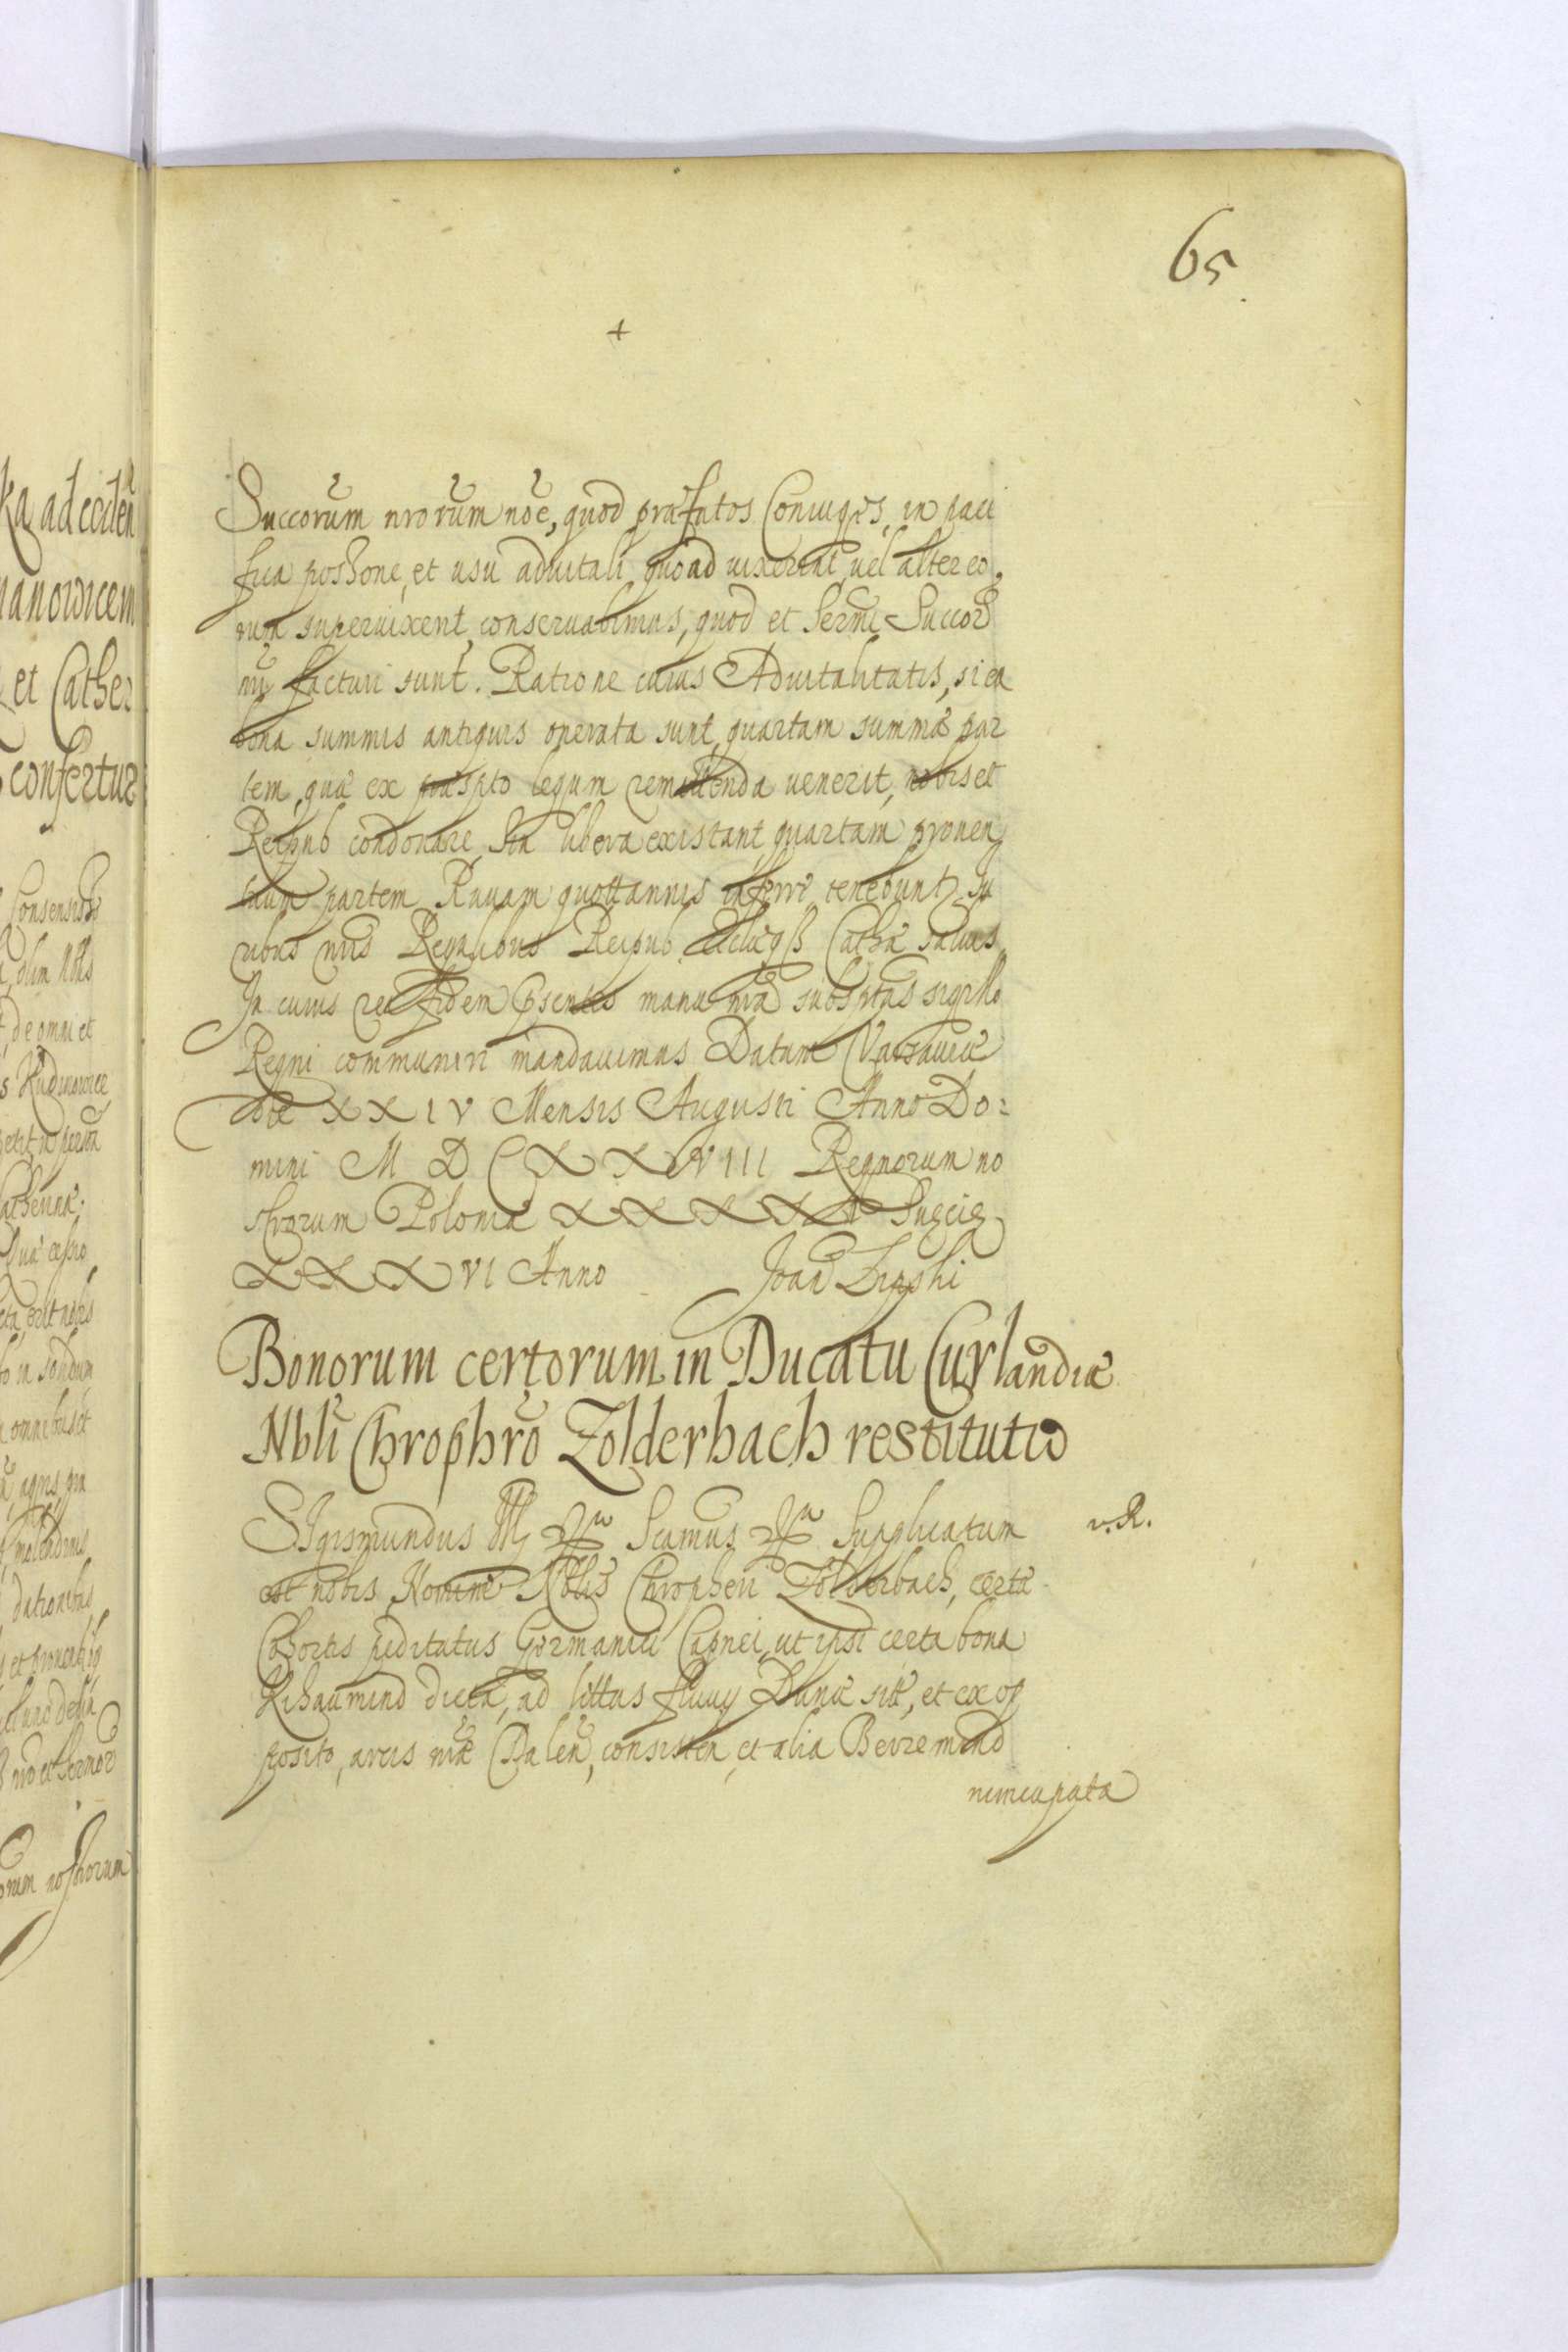 65
+
Succorum nrorum noe, quod præfatos Coniuges, in paci
fica possone, et usu aduitali quoad uixerint, uel alter eo,
rum superuixerit, conseruabimus, quod et Sermi Succor
nri facturi sunt. Ratione cuius Aduitalitatis, si ea
bona summis antiquis onerata sunt, quartam summæ par
tem, quæ ex præspto legum remittenda uenerit, nobis et
Reipub condonare, Sin libera existant, quartam prouen,
tuum partem Rauam quottannis inferre tenebunt, Iu
ribus nris Regalibus Reipub Cathæ saluis
In cuius rei fidem psentes manu nra subsptas sigillo
Regni communiri mandauimus Datum Varsauiæ
die XXIV Mensis Augusti Anno Do:
mini M D C X X VIII Regnorum no
strorum Poloniæ XXXXI Sueciæ
XXXVI Anno Joan Lipski
Bonorum certorum in Ducatu Curlandiæ
Nbli Chrophro Zolderbach restitutio
SIgismundus III Scamus Supplicatum
est nobis Nomine Nblis Chropheri Zolderbach, certæ
Cohortis peditatus Germanici Capnei, ut ipsi certa bona
Kihaumend dicta, ad littus fluuy Dunæ sita, et ex op
posito, arcis nræ Dalen, consisten, et alia Beuremend
nuncupata
v. R.
ka ad eciden
manowicem
et Cather
confertur
Consensisse
olim Nblis
de omni et
Cathenna.
Qua cessio
omnibus et
agris, pra
molendinis
dationibus
et prouentib
orum nostrorum